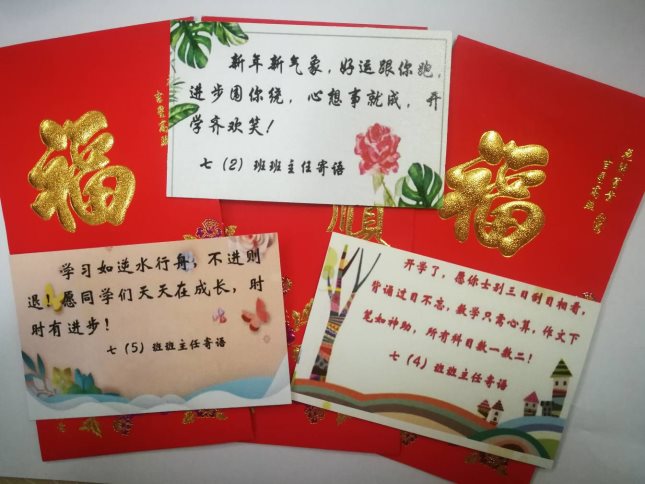 新年新气象，好运跟你跑，
进步围你绕，心想事就成，开
学齐欢笑！
七（2）班班主任寄语
福
福
学习如逆水行舟，不进则
退！愿同学们天天在成长，时
时有进步！
七（5）班班主任寄语
开学了，愿你士别三日刮目相看，
背诵过目不忘，数学只需心算，作文下
笔如神助，所有科目数一数二！
七（4）班班主任寄语